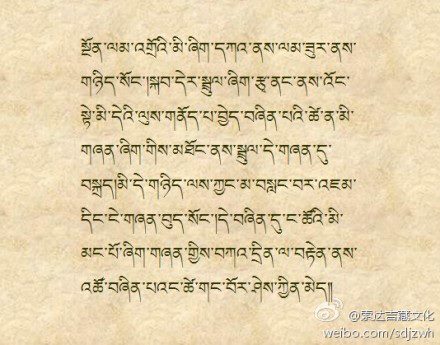 སྔོན་ལམ་འགྲོའི་མི་ཞིག་དཀའ་ནས་ལམ་ཟུར་ནས་
གཉིད་སོང་།སྐབ་དེར་སྦྲུལ་ཞིག་རྩྭ་ནང་ནས་འོང་
སྟེ་མི་དེའི་ལུས་གནོད་པ་བྱེད་བཞིན་པའི་ཚེ་ན་མི་
གཞན་ཞིག་གིས་མཐོང་ནས་སྦྲུལ་དེ་གཞན་དུ་
བསྐྲད།མི་དེ་གཉིད་ལས་ཀྱང་མ་བསླང་བར་འཇམ་
དིང་ངེ་གཞན་བུད་སོང་།དེ་བཞིན་དུ་ང་ཚོའི་མི་
མང་པོ་ཞིག་གཞན་གྱིས་བཀའ་དྲིན་ལ་བརྟེན་ནས་
འཚོ་བཞིན་པའང་ཚེ་གང་བོར་ཤེས་ཀྱིན་མེད༎
@索达吉藏文化
weibo.com/sdjzwh